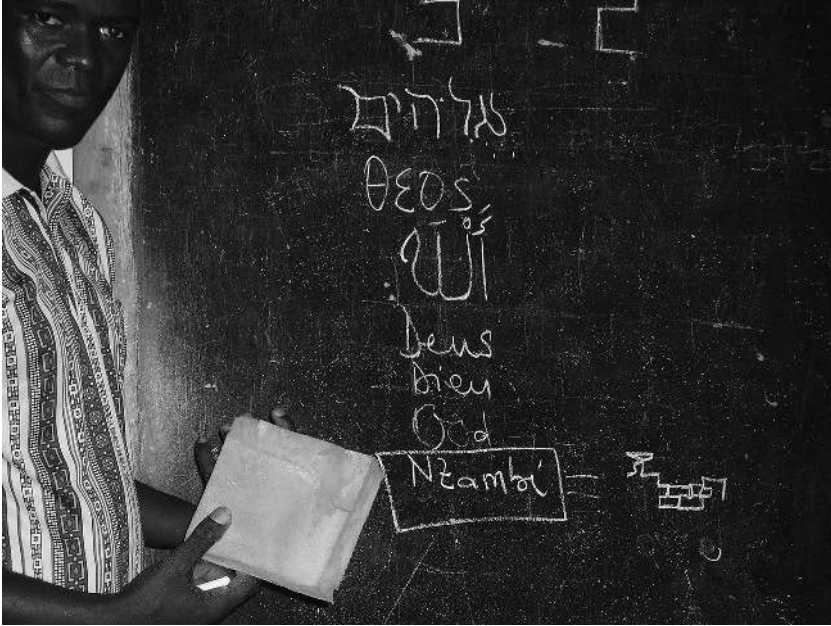 אלהים
θεος
الله
Deus
Dieu
God
Nzambi =